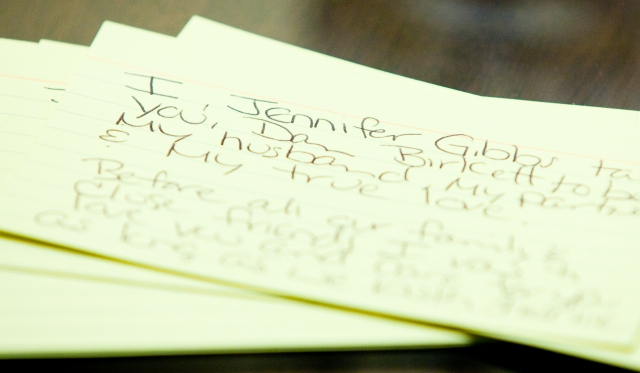 I, Jennifer Gibbs ta
you, Dan Birkett to be
My husband, My Partne
& My true love.
Before all our family &
close friends I vow to
love you and
as long as we both